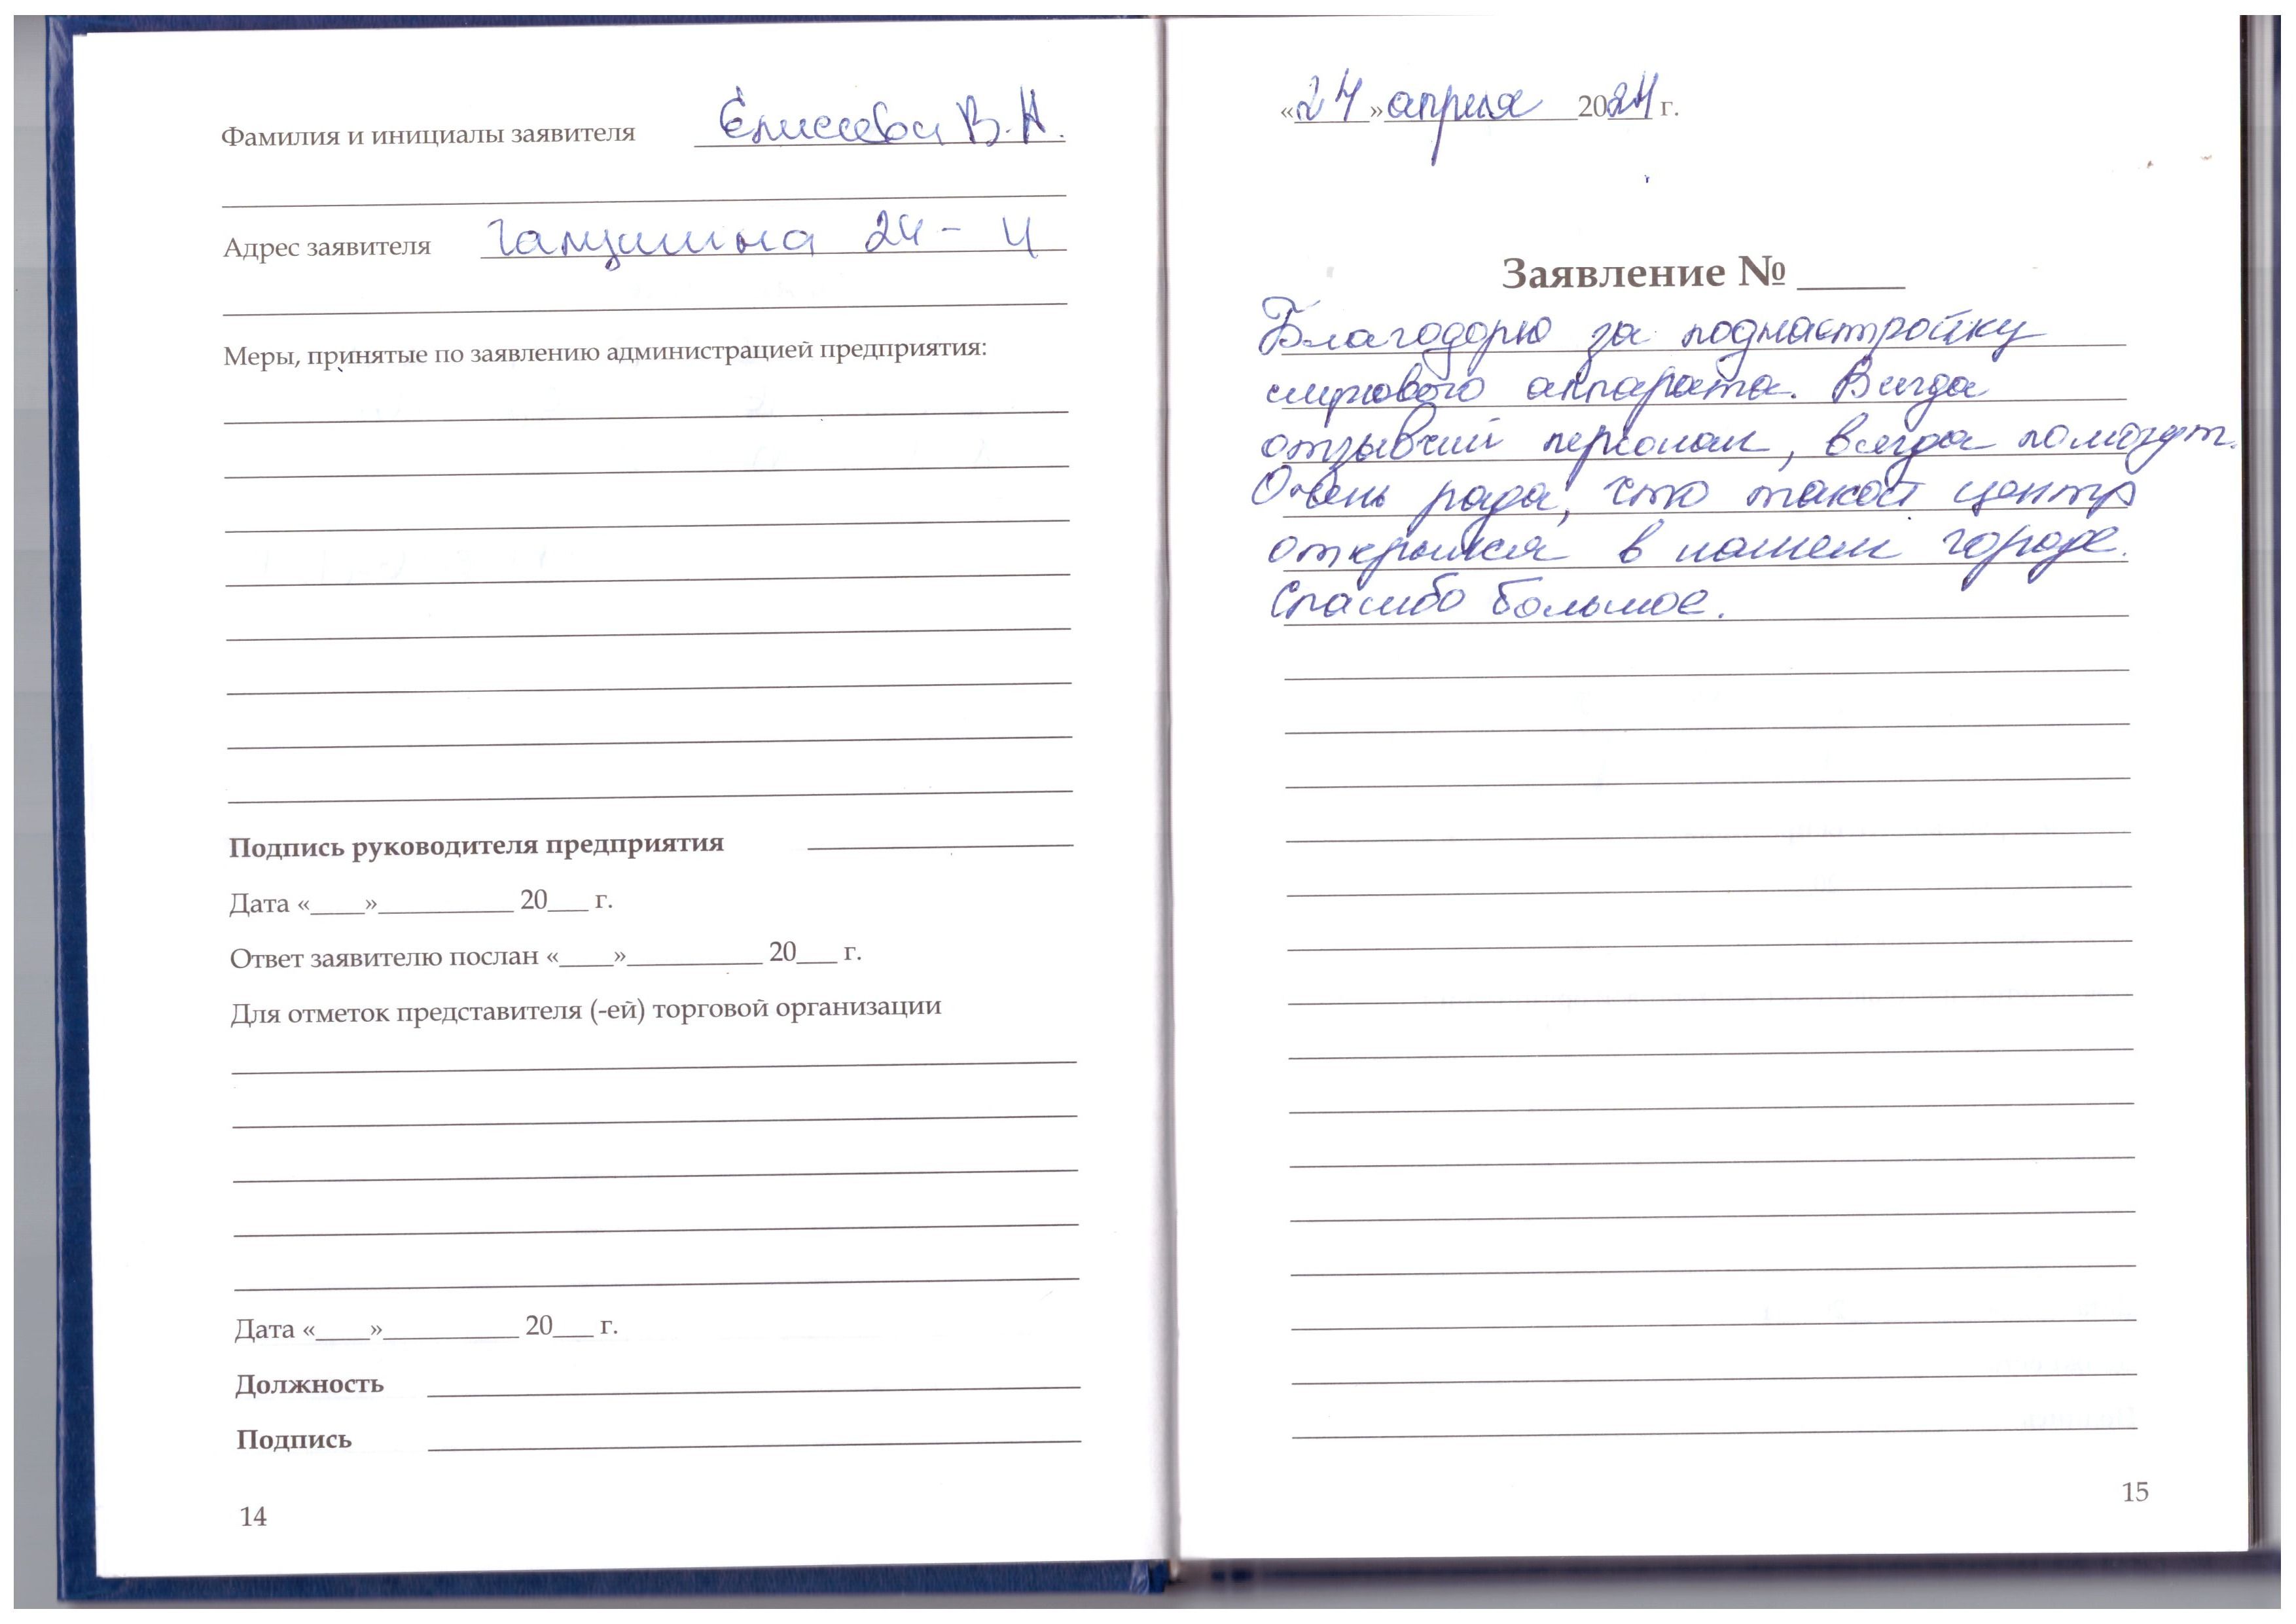 Фамилия и инициалы заявителя Елисеева В.Н.
Адрес заявителя Галушина 24 - 4
Меры, принятые по заявлению администрацией предприятия:
Подпись руководителя предприятия
Дата «____»__________ 20___ г.
Ответ заявителю послан «____»__________ 20___ г.
Для отметок представителя (-ей) торговой организации
Дата «____»__________ 20___ г.
Должность
Подпись
14
«24» апреля 2024 г.
Заявление № _____
Благодарю за поднастройку
слухового аппарата. Всегда
отзывчий персонал, всегда помогут.
Очень рада, что такой центр
открылся в нашем городе.
Спасибо большое.
15